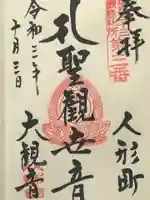 奉拝
第三番
人形町
聖觀世音
大観音
令和二年
十月三日